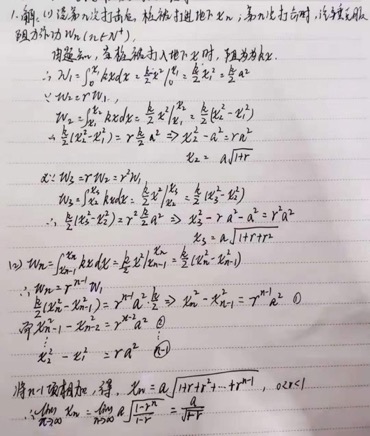 1.解:(1)设第n次打击后,桩被打进地下xn,第n次打击时,汽锤克服
阻力所功Wn(n∈N+).
由题知,当桩被打入地下x时,阻力为kx.
∴ W₁=∫₀^{x₁}kxdx=k/2x²|₀^{x₁}=k/2x₁²=k/2a²
∵ W₂=rW₁,
W₂=∫_{x₁}^{x₂}kxdx=k/2x²|_{x₁}^{x₂}=k/2(x₂²-x₁²)
∴ k/2(x₂²-x₁²)=r k/2a² ⇒ x₂²-a²=ra²
x₂=a√(1+r)
又∵W₃=rW₂=r²W₁
W₃=∫_{x₂}^{x₃}kxdx=k/2x²|_{x₂}^{x₃}=k/2(x₃²-x₂²)
∴ k/2(x₃²-x₂²)=r²k/2a² ⇒ x₃²-ra²-a²=r²a²
x₃=a√(1+r+r²)
(2) Wn=∫_{xn-1}^{xn}kxdx=k/2x²|_{xn-1}^{xn}=k/2(xn²-xn-1²)
∴Wn=r^{n-1}W₁
k/2(xn²-xn-1²)=r^{n-1}a²·k/2 ⇒ xn²-xn-1²=r^{n-1}a² ①
即xn-1²-xn-2²=r^{n-2}a² ②
⋮
x₂²-x₁²=ra² (n-1)
将n-1项相加,得,xn=a√(1+r+r²+…+r^{n-1}), 0<r<1
∴lim_{n→∞}xn=lim_{n→∞}a√((1-rⁿ)/(1-r))=a/√(1-r)